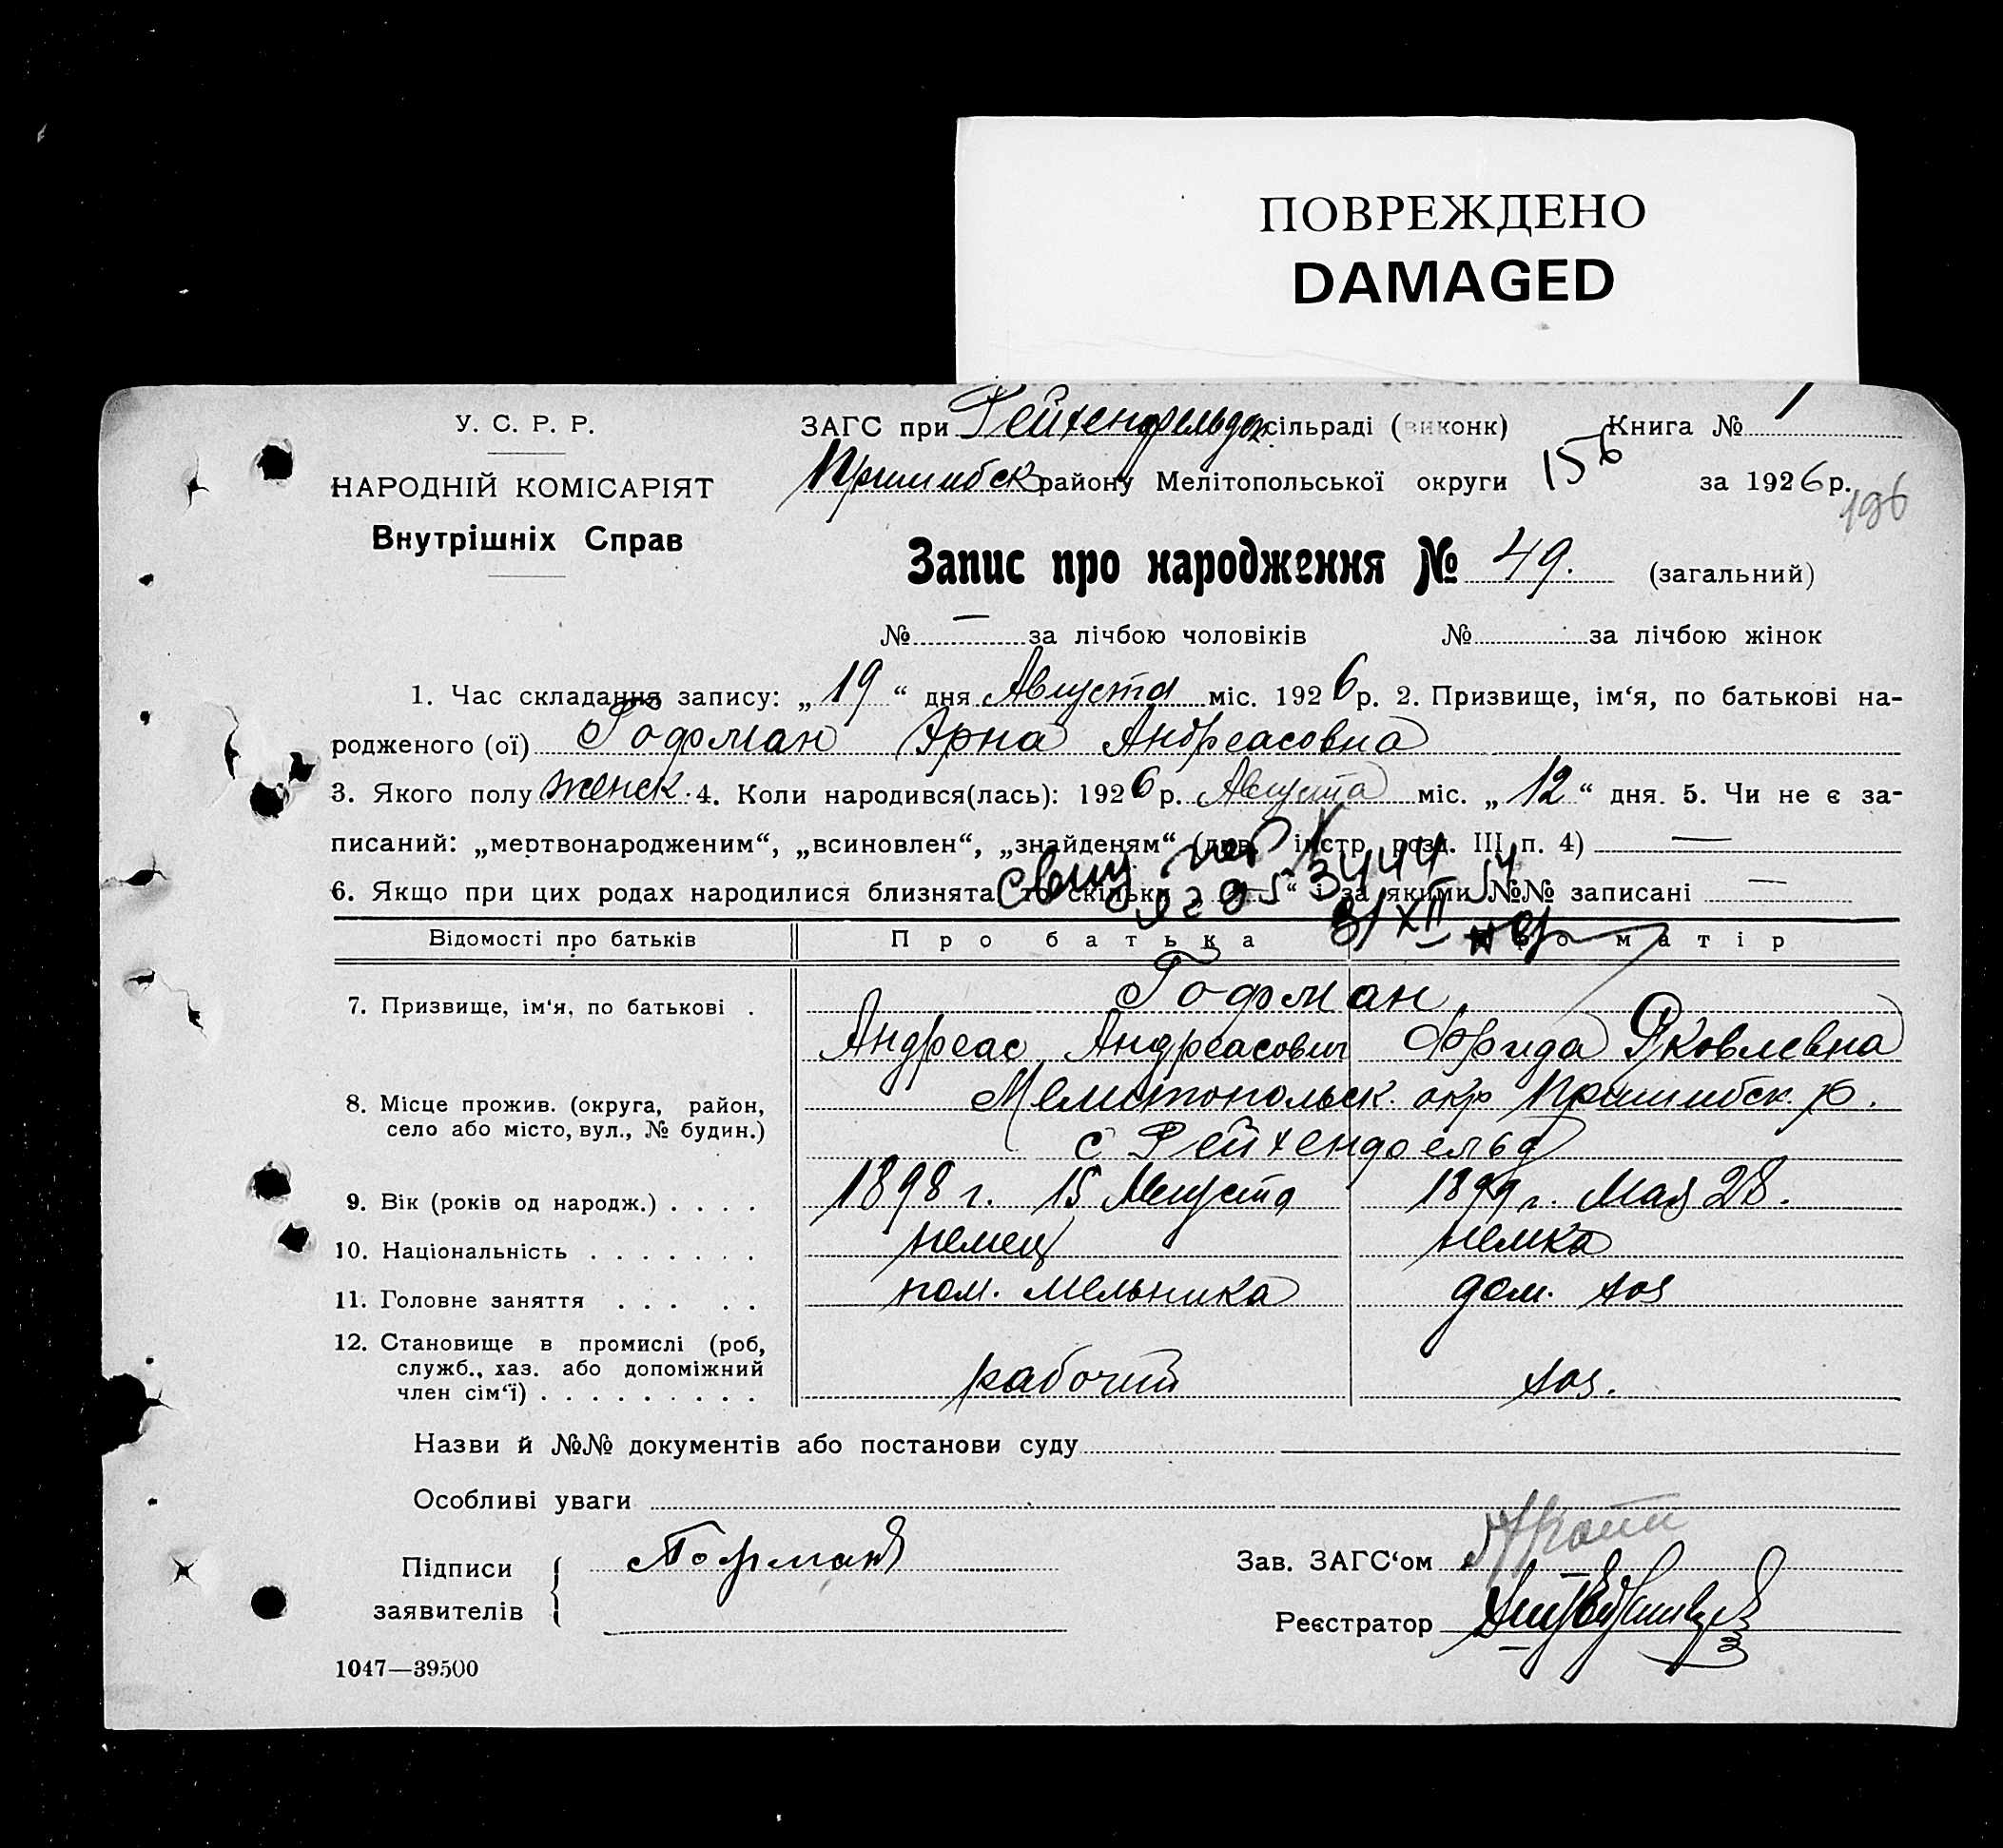 ПОВРЕЖДЕНО
DAMAGED
У. С. Р. Р.
НАРОДНІЙ КОМІСАРІЯТ
Внутрішніх Справ
ЗАГС при Рейхенфельдск сільраді (виконк) Книга № 1
Пришибск району Мелітопольської округи 156 за 1926 р.
196
Запис про народження № 49. (загальний)
№ — за лічбою чоловіків № за лічбою жінок
1. Час складання запису: „19“ дня Августа міс. 1926 р. 2. Призвище, ім‘я, по батькові на-
родженого (ої) Гофман Эрна Андреасовна
3. Якого полу женск. 4. Коли народився(лась): 1926 р. Августа міс. „12“ дня. 5. Чи не є за-
писаний: „мертвонародженим“, „всиновлен“, „знайденям“ (див. інстр. розд. III п. 4) —
6. Якщо при цих родах народилися близнята, то скільки „—“ і за якими №№ записані —
31/XII
Відомості про батьків Про батька Про матір
7. Призвище, ім‘я, по батькові . Гофман
Андреас Андреасович Фрида Яковлевна
8. Місце прожив. (округа, район, село або місто, вул., № будин.) Мелитопольск. окр Пришибск. р.
с Рейхенфельд
9. Вік (років од народж.) . . . . 1898 г. 15 Августа 1899 г. Мая 28.
10. Національність . . . . . . . немец немка
11. Головне заняття . . . . . пом. мельника дом. хоз
12. Становище в промислі (роб,
служб., хаз. або допоміжний
член сім‘ї) . . . . . . . . . рабочий хоз.
Назви й №№ документів або постанови суду
Особливі уваги
Підписи
заявителів
Гофман
Зав. ЗАГС‘ом
Реєстратор
1047—39500